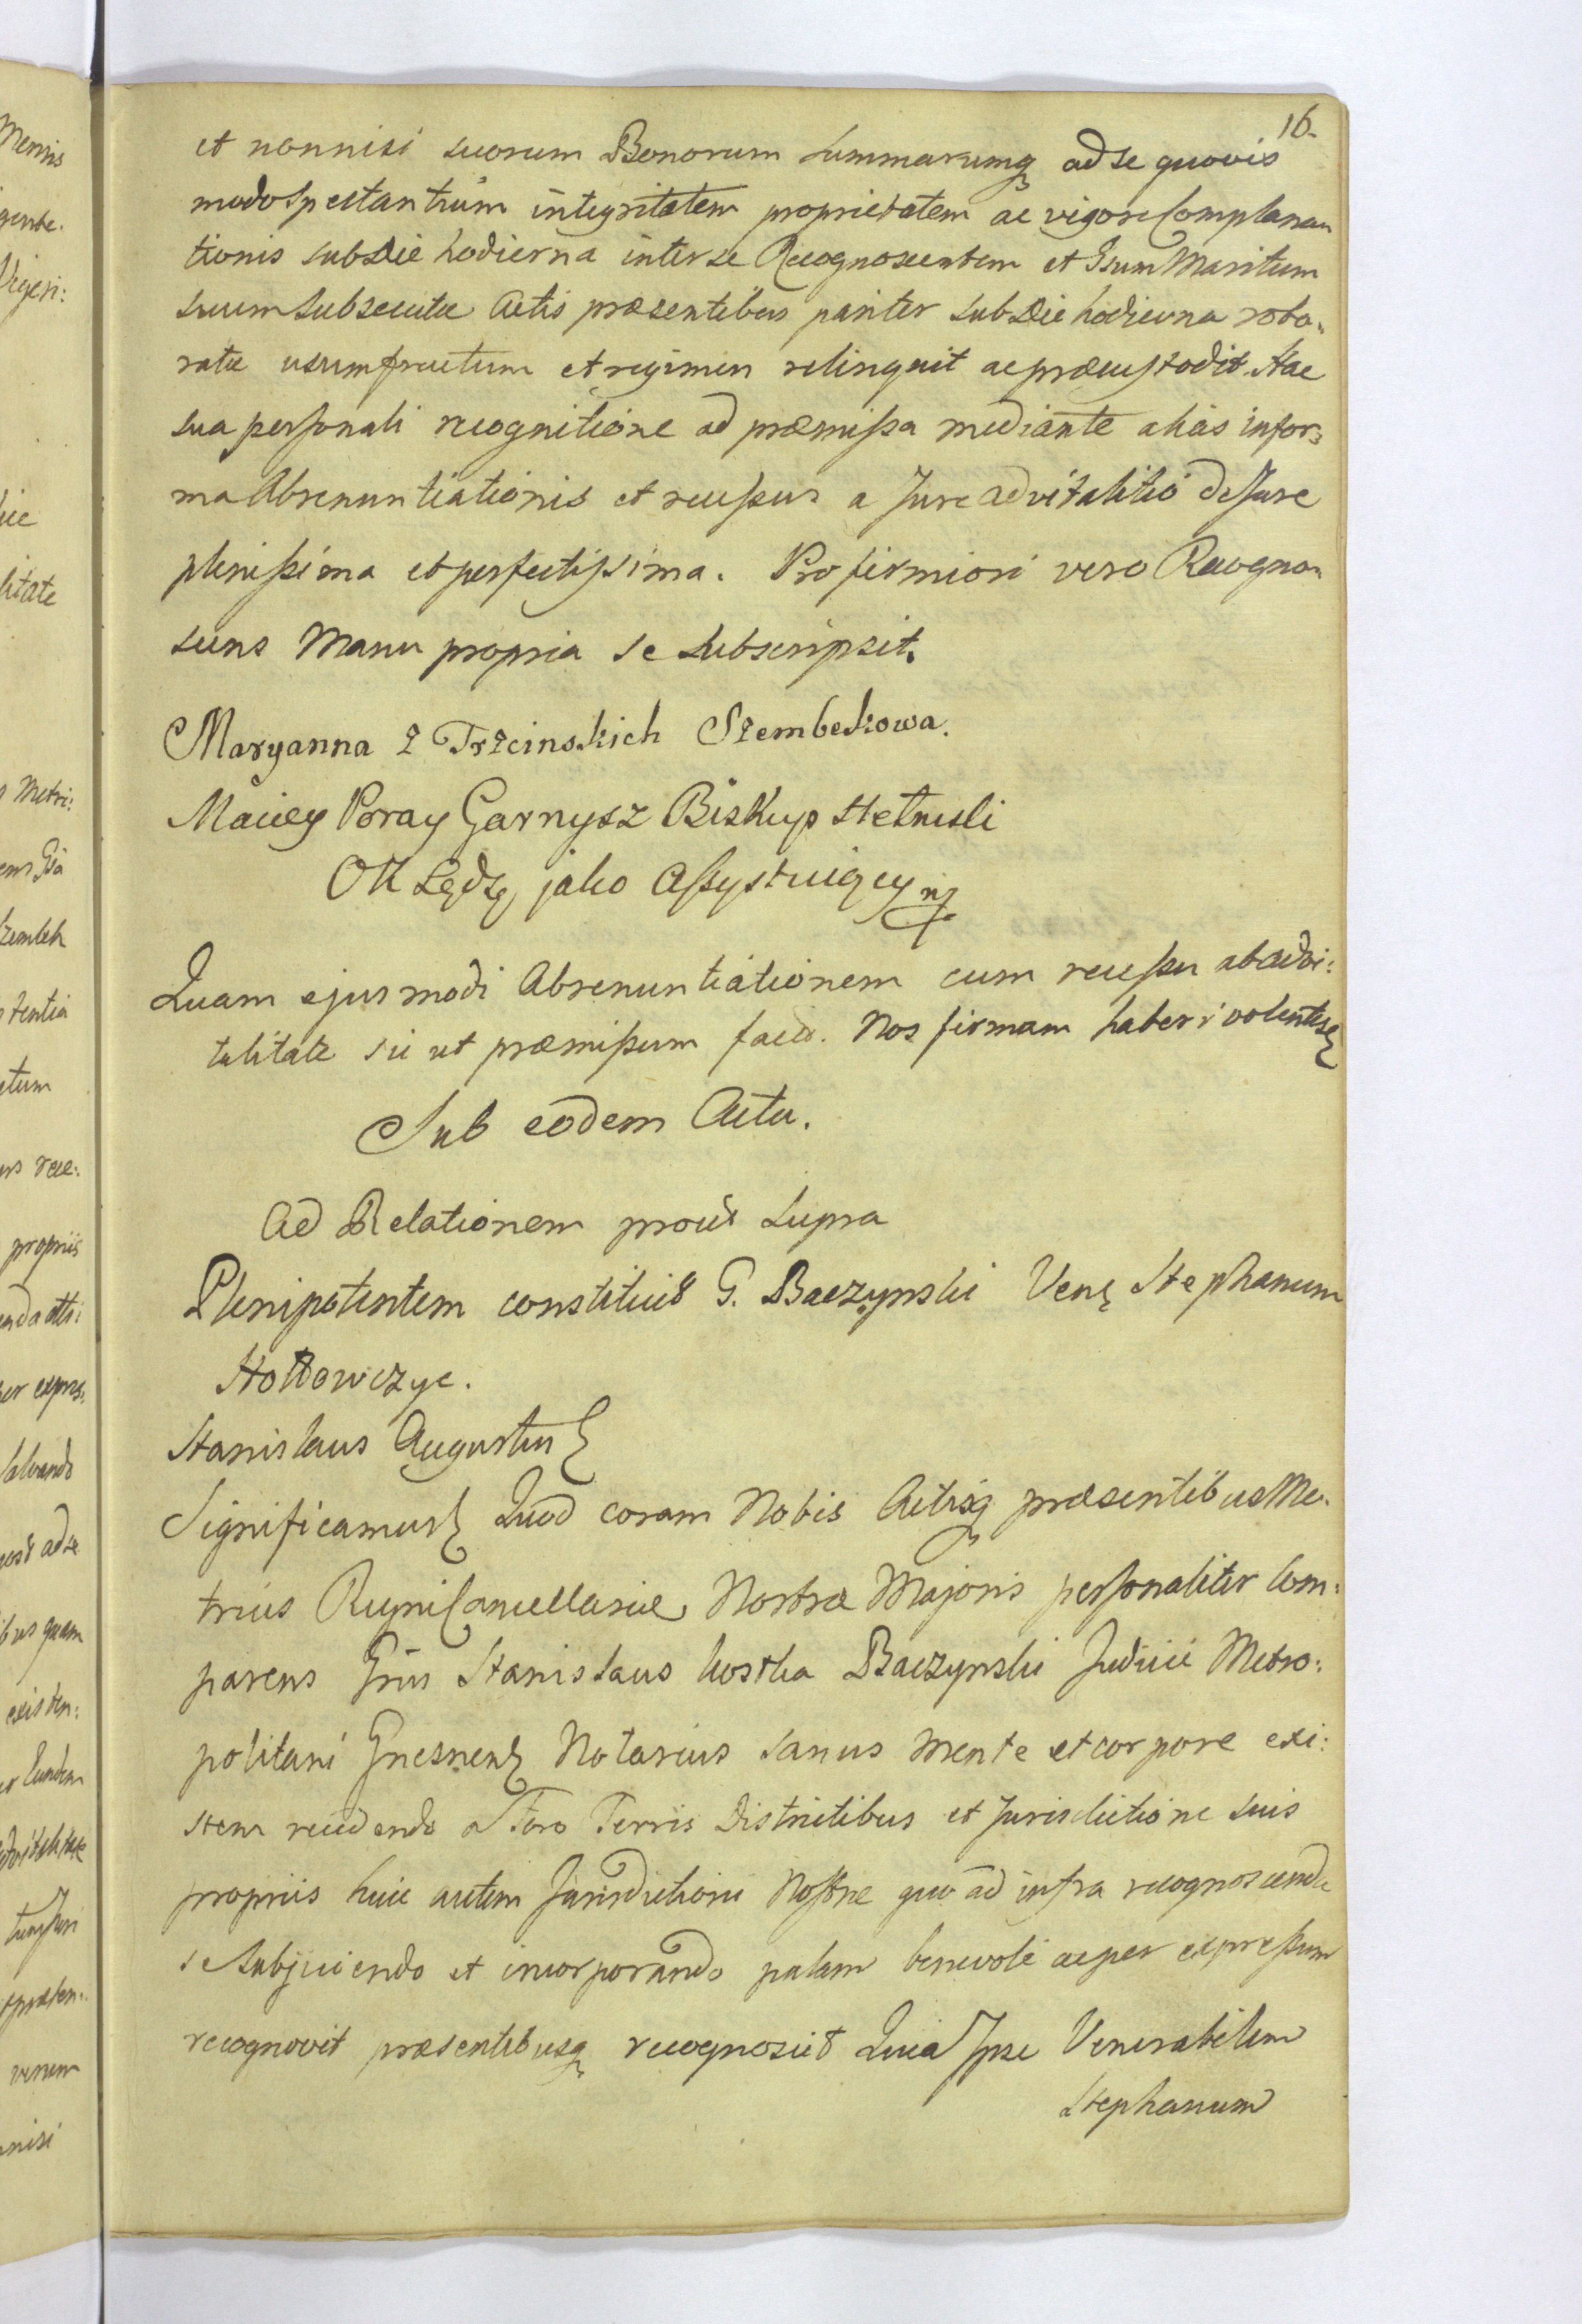 16.
et nonnisi suorum Bonorum Summarumq ad se quovis
modo spectantium integritatem proprietatem ac vigore Complana„
tionis sub Die hodierna inter se Recognoscentem et Gsum Maritum
suum subsecutæ Actis præsentibus pariter sub Die hodierna robo„
ratæ usumfructum et regimen relinquit ac præcustodit. Hac
sua personali recognitione ad præmissa mediante alias in for„
ma Abrenuntiationis et recessus a Jure advitalitio de Jure
plenissima et perfectissima. Pro firmiori vero Recogno„
scens Manu propria se subscripsit.
Maryanna z Trzcinskich Szembekowa.
Maciey Poray Garnysz Biskup Hetmski
OK Sędzę jako Assystuiący
Quam ejusmodi Abrenuntiationem cum recessu ab advi:
talitate sic ut præmissum facto. Nos firmam haberi volentes
Sub eodem Actu.
Ad Relationem prout Supra
Plenipotentem constituit G. Baczynski Ven Stephanum
Hołowczyc.
Stanislaus Augustus
Significamus Quod coram Nobis Actisq præsentibus Me„
trices Regni Cancellariæ Nostræ Majoris personaliter Com:
parens Grus Stanislaus Kostka Baczynski Judicii Metro:
politani Gnesnen Notarius sanus mente et corpore exi:
stens recedendo a Foro Terris Districtibus et Jurisdictione suis
propriis huic autem Jurisdictioni Nostræ quo ad infra recognoscenda
se Subjiciendo et incorporando palam benevole ac per expressum
recognovit præsentibusq recognoscit Quia Ipse Venerabilem
Stephanum